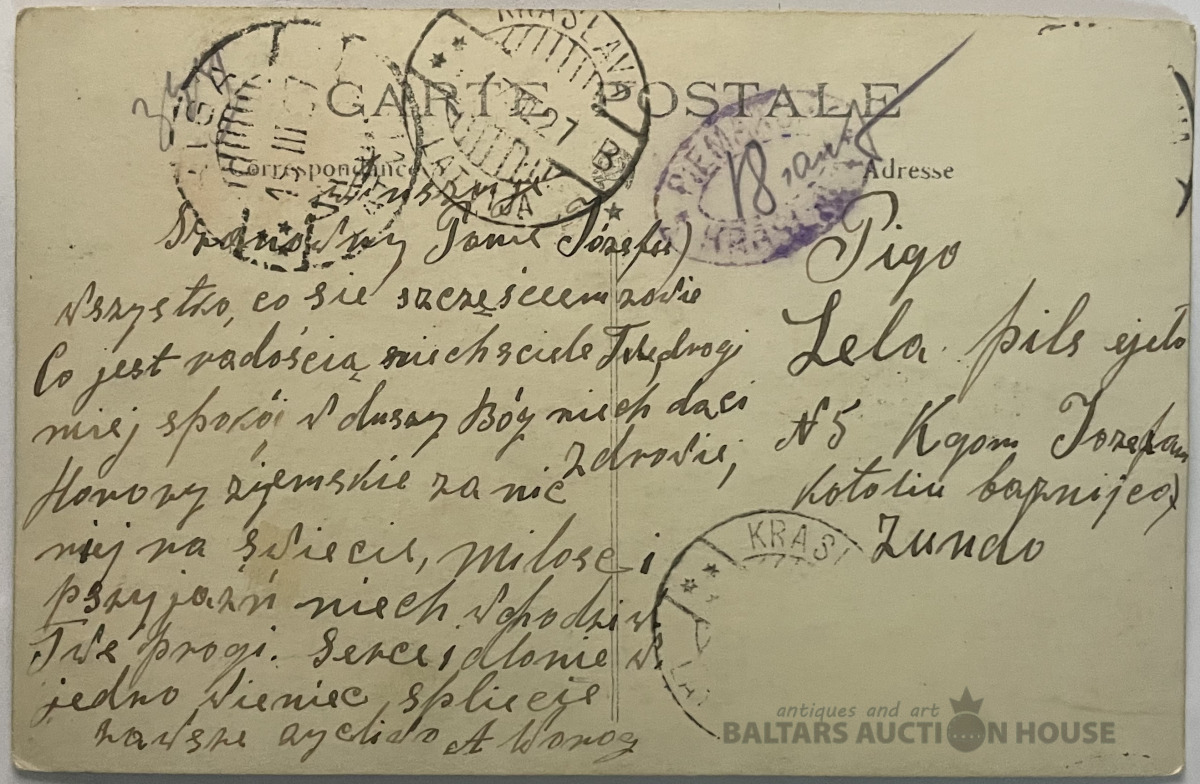 CARTE POSTALE
Correspondance
Adresse
KRASLAVA
27
B
LATVIJA
18
KRASLAVA
Winszuję
Szanowny Panie Józefu)
Wszystko, co sie szczęściem zowie
Co jest radością niech ściele Twe drogi
miej spokój w duszy Bóg niech da ci
zdrowie,
Honory ziemskie za nic
miej na świecie, Milosc i
przyjaźń niech wchodzi w
Twe progi. Serce i dlonie w
jedno wieniec splecże
zawsze A Worog
Pigo
Lela pils
N 5 Kgom Jozefam
kotoliu baznijca)
Zundo
KRASL
LAT
antiques and art
BALTARS AUCTION HOUSE